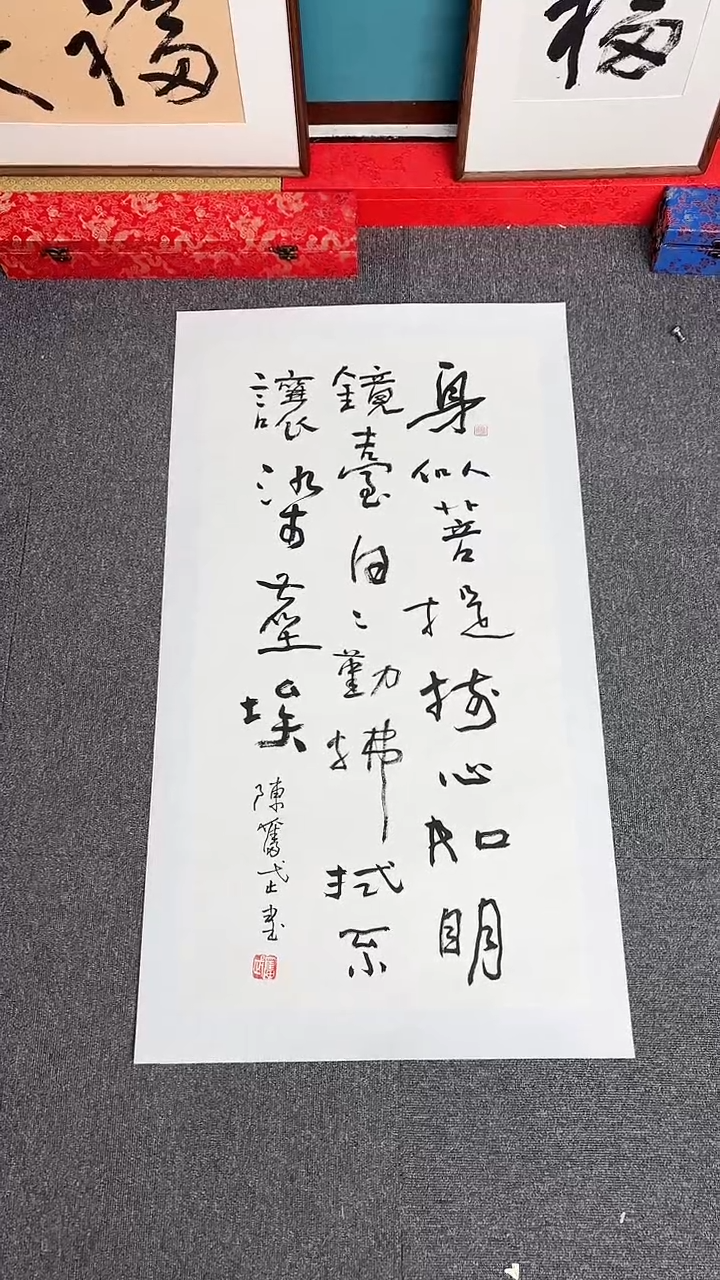 福
福
身似菩提樹心如明
鏡臺日〻勤拂拭不
讓染塵埃
陳奮武書